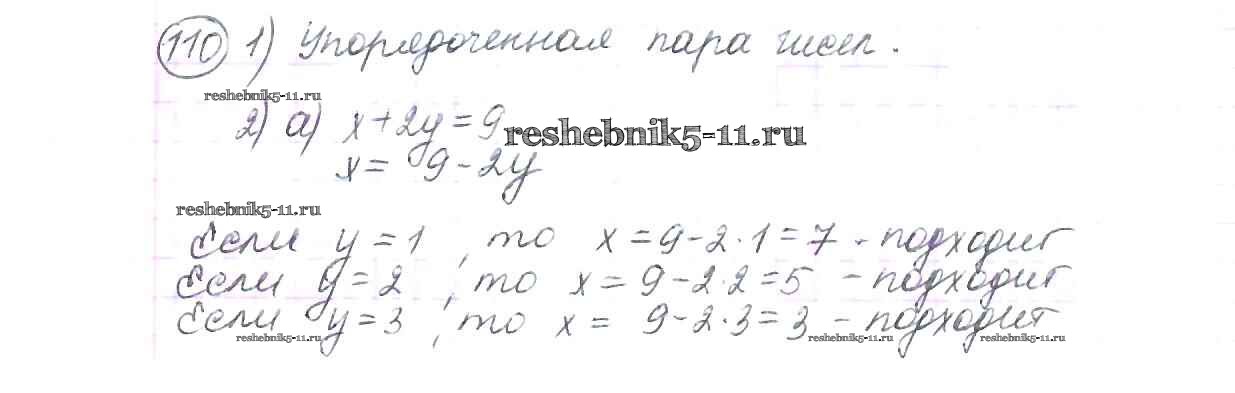 110 1) Упорядоченная пара чисел.
reshebnik5-11.ru
2) а) x+2y=9
reshebnik5-11.ru
x= 9-2y
reshebnik5-11.ru
Если y=1, то x=9-2·1=7 - подходит
Если y=2, то x=9-2·2=5 - подходит
Если y=3, то x= 9-2·3=3 - подходит
reshebnik5-11.ru reshebnik5-11.ru reshebnik5-11.ru